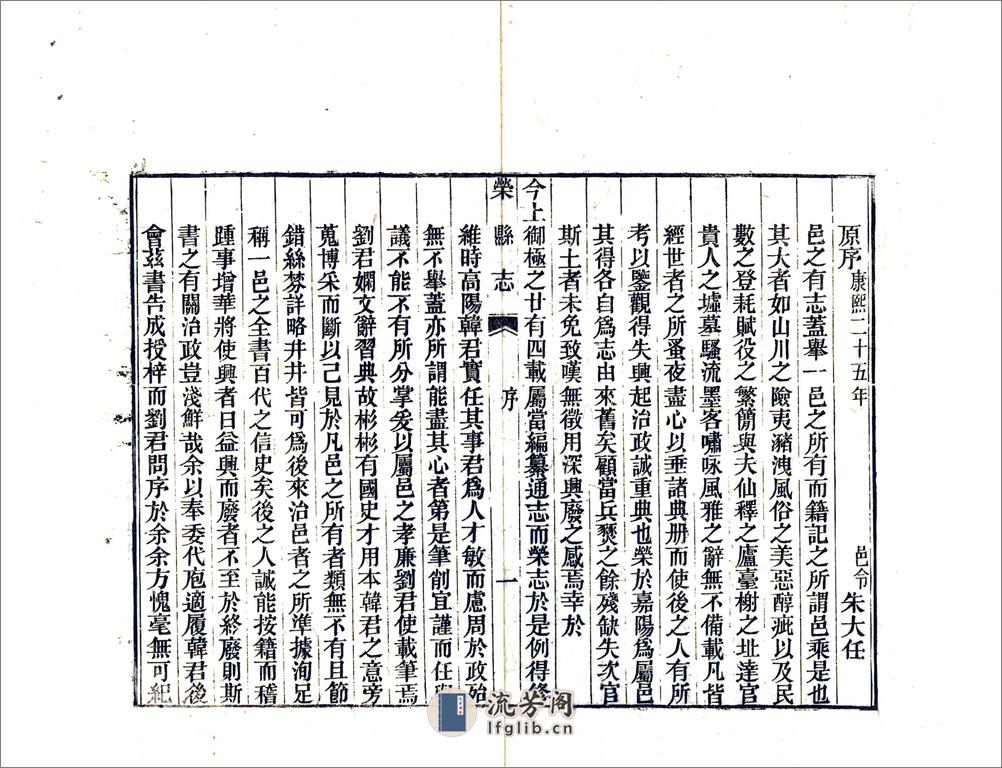 原序康熙二十五年 邑令朱大任
邑之有志蓋舉一邑之所有而籍記之所謂邑乘是也
其大者如山川之險夷豬洩風俗之美惡醇疵以及民
數之登耗賦役之繁簡與夫仙釋之廬臺榭之址達官
貴人之墟墓騷流墨客嘯咏風雅之辭無不備載凡皆
經世者之所蚤夜盡心以垂諸典册而使後之人有所
考以鑒觀得失興起治政誠重典也榮於嘉陽爲屬邑
其得各自爲志由來舊矣顧當兵燹之餘殘缺失次官
斯土者未免致嘆無徵用深興廢之感焉幸於
今上御極之廿有四載屬當編纂通志而榮志於是例得修
榮縣志 序 一
維時高陽韓君實任其事君爲人才敏而慮周於政殆
無不舉蓋亦所謂能盡其心者第是筆削宜謹而任
議不能不有所分掌爰以屬邑之孝廉劉君使載筆焉
劉君嫻文辭習典故彬彬有國史才用本韓君之意旁
蒐博采而斷以己見於凡邑之所有者類無不有且節
錯絲棼詳略井井皆可爲後來治邑者之所準據洵足
稱一邑之全書百代之信史矣後之人誠能按籍而稽
踵事增華將使興者日益興而廢者不至於終廢則斯
書之有關治政豈淺鮮哉余以奉委代庖適履韓君後
會茲書告成授梓而劉君問序於余余方愧毫無可紀
流芳閣
lfglib.cn